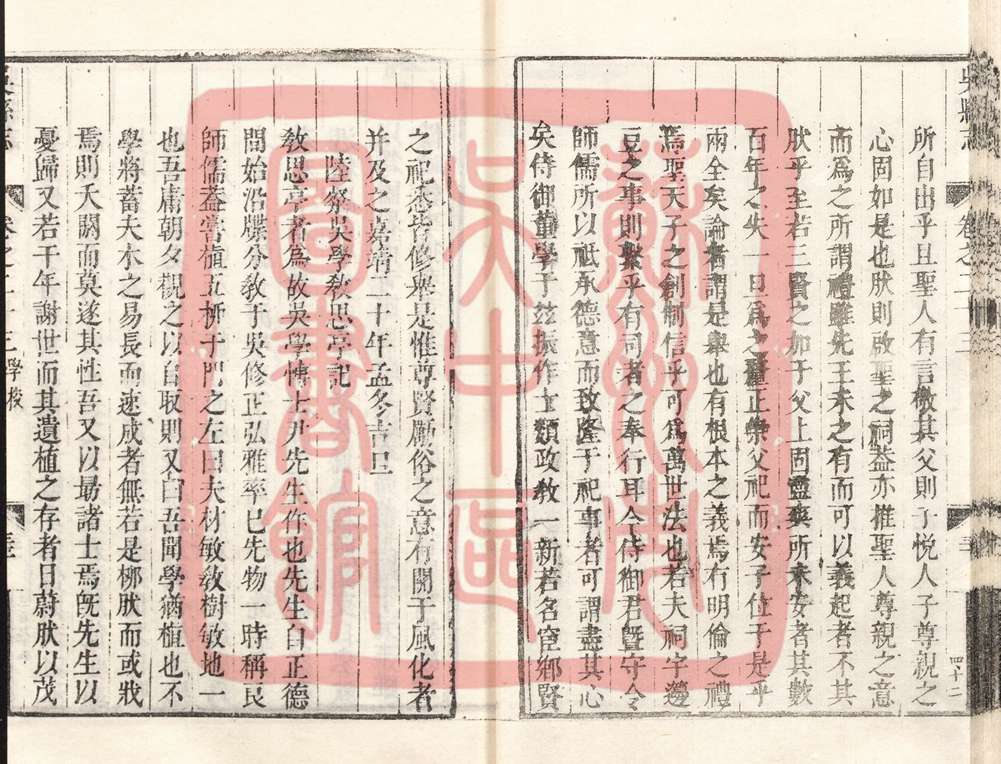 所自出乎且聖人有言敬其父則子悅人子尊親之
心固如是也肰則啟聖之祠益亦推聖人尊親之意
而爲之所謂禮雖先王未之有而可以義起者不其
肰乎至若三賢之加于父上固靈爽所未安者其數
百年之失一旦爲之釐正崇父祀而安子位于是乎
兩全矣論者謂是舉也有根本之義焉有明倫之禮
焉聖天子之創制信乎可爲萬世法也若夫祠宇籩
豆之事則繫乎有司者之奉行耳今侍御君曁守令
師儒所以祗承德意而致隆于祀事者可謂盡其心
矣侍御董學于玆振作士類政敎一新若名宦鄉賢
四十二
吳縣志
卷之二十三
學校
之祀杰皆修舉是惟尊賢勵俗之意有關于風化者
并及之嘉靖二十年孟冬吉旦
陸粲吳學敎思亭記
敎思亭者爲故吳學博士尹先生作也先生自正德
間始沿牒分敎于吳修正弘雅率已先物一時稱良
師儒葢嘗植五柳于門之左曰夫材敏敎樹敏地一
也吾庸朝夕觀之以自取則又曰吾聞學猶植也不
學將蓄夫木之易長而速成者無若是柳肰而或戕
焉則夭閼而莫遂其性吾又以勗諸士焉旣先生以
憂歸又若干年謝世而其遺植之存者日蔚肰以茂
蘇州市
吳中區
圖書館